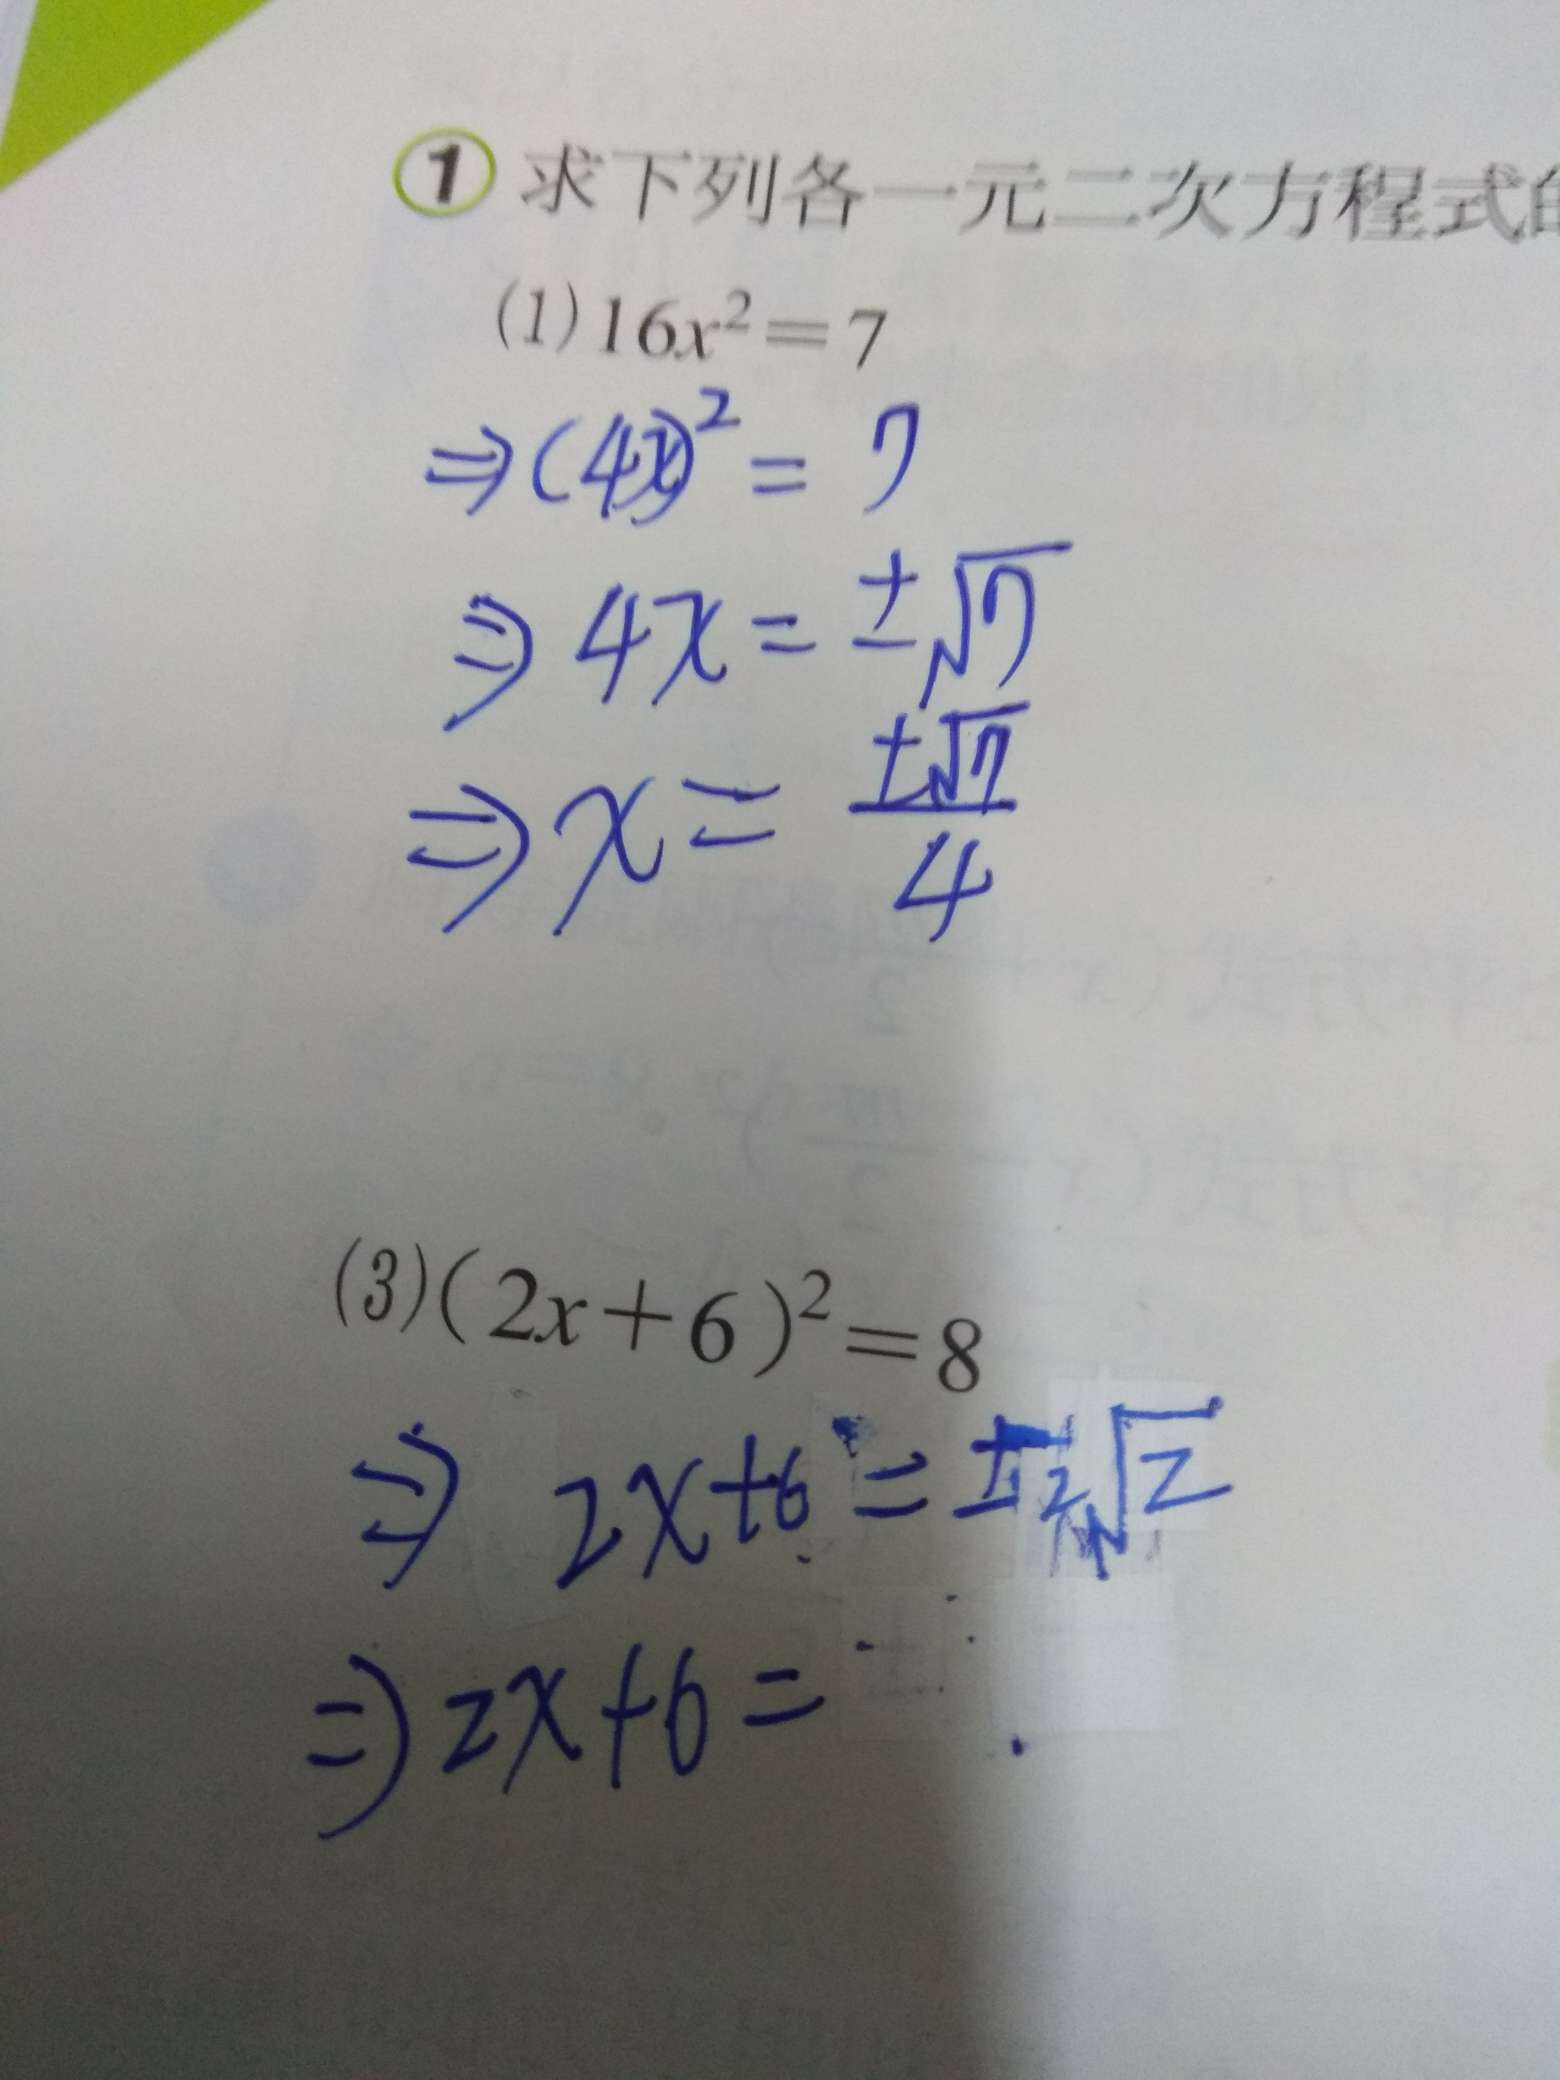 1 求下列各一元二次方程式的
(1) 16x²=7
⇒(4x)² = 7
⇒ 4x = ±√7
⇒ x = ±√7/4
(3) (2x+6)²=8
⇒ 2x+6 = ±2√2
⇒ 2x+6 =